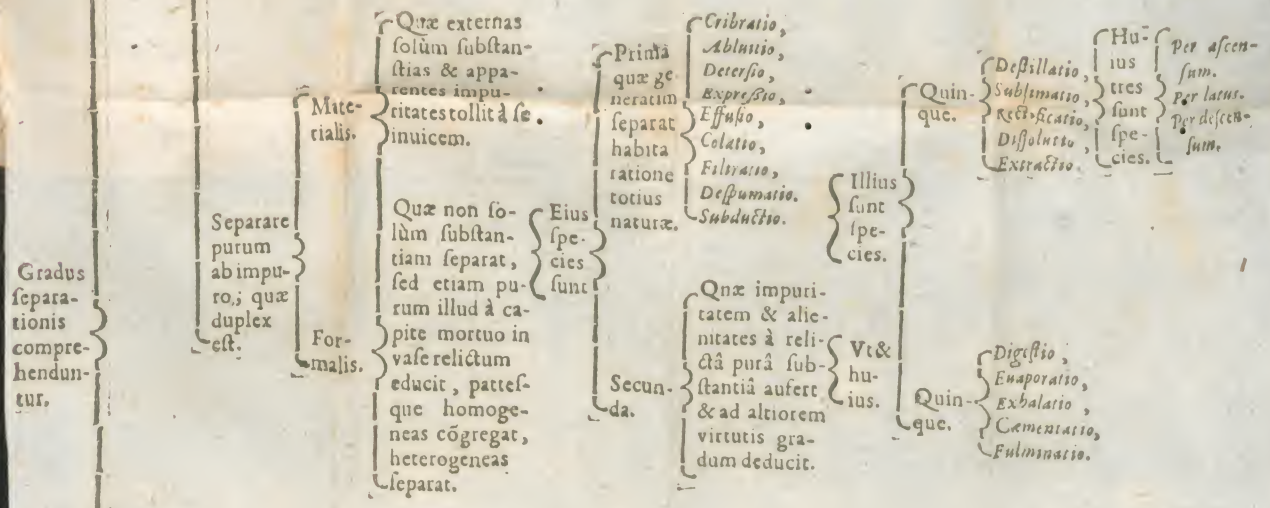 Gradus
ſepara-
tionis
compre-
hendun-
tur,
Separare
purum
ab impu-
ro,; quæ
duplex
eſt.
Mate-
rialis.
Quæ externas
ſolùm ſubſtan-
ſtias & appa-
rentes impu-
ritates tollit à ſe
inuicem.
For-
malis.
Quæ non ſo-
lùm ſubſtan-
tiam ſeparat,
ſed etiam pu-
rum illud à ca-
pite mortuo in
vaſe relictum
educit, patteſ-
que homoge-
neas cōgregat,
heterogeneas
ſeparat.
Eius
ſpe-
cies
ſunt
Prima
quæ ge-
neratim
ſeparat
habita
ratione
totius
naturæ.
Cribratio,
Ablutio,
Deterſio,
Expreßio,
Effuſio,
Colatio,
Filtratio,
Deſpumatio.
Subductio.
Secun-
da.
Qnæ impuri-
tatem & alie-
nitates à reli-
ctâ purâ ſub-
ſtantiâ aufert
& ad altiorem
virtutis gra-
dum deducit.
Vt &
hu-
ius.
Illius
ſunt
ſpe-
cies.
Quin-
que.
Deſtillatio,
Sublimatio,
Rectificatio,
Diſſolutio,
Extractio.
Hu-
ius
tres
ſunt
ſpe-
cies.
Per aſcen-
ſum.
Per latus.
Per deſcen-
ſum.
Quin-
que.
Digeſtio,
Euaporatio,
Exhalatio,
Cæmentatio,
Fulminatio.